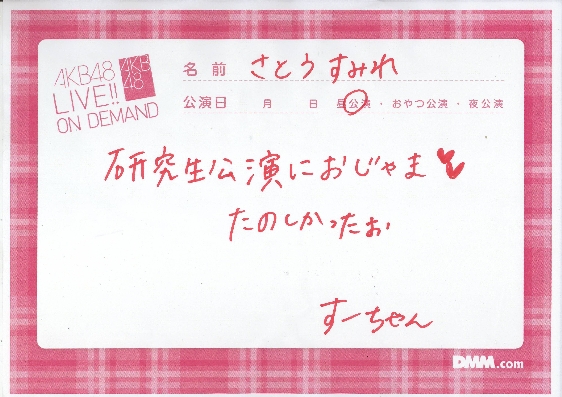 AKB48
LIVE!!
ON DEMAND
AKB
48
名前 さとうすみれ
公演日 月 日 昼公演・おやつ公演・夜公演
研究生公演におじゃま♥
たのしかったお
すーちゃん
DMM.com